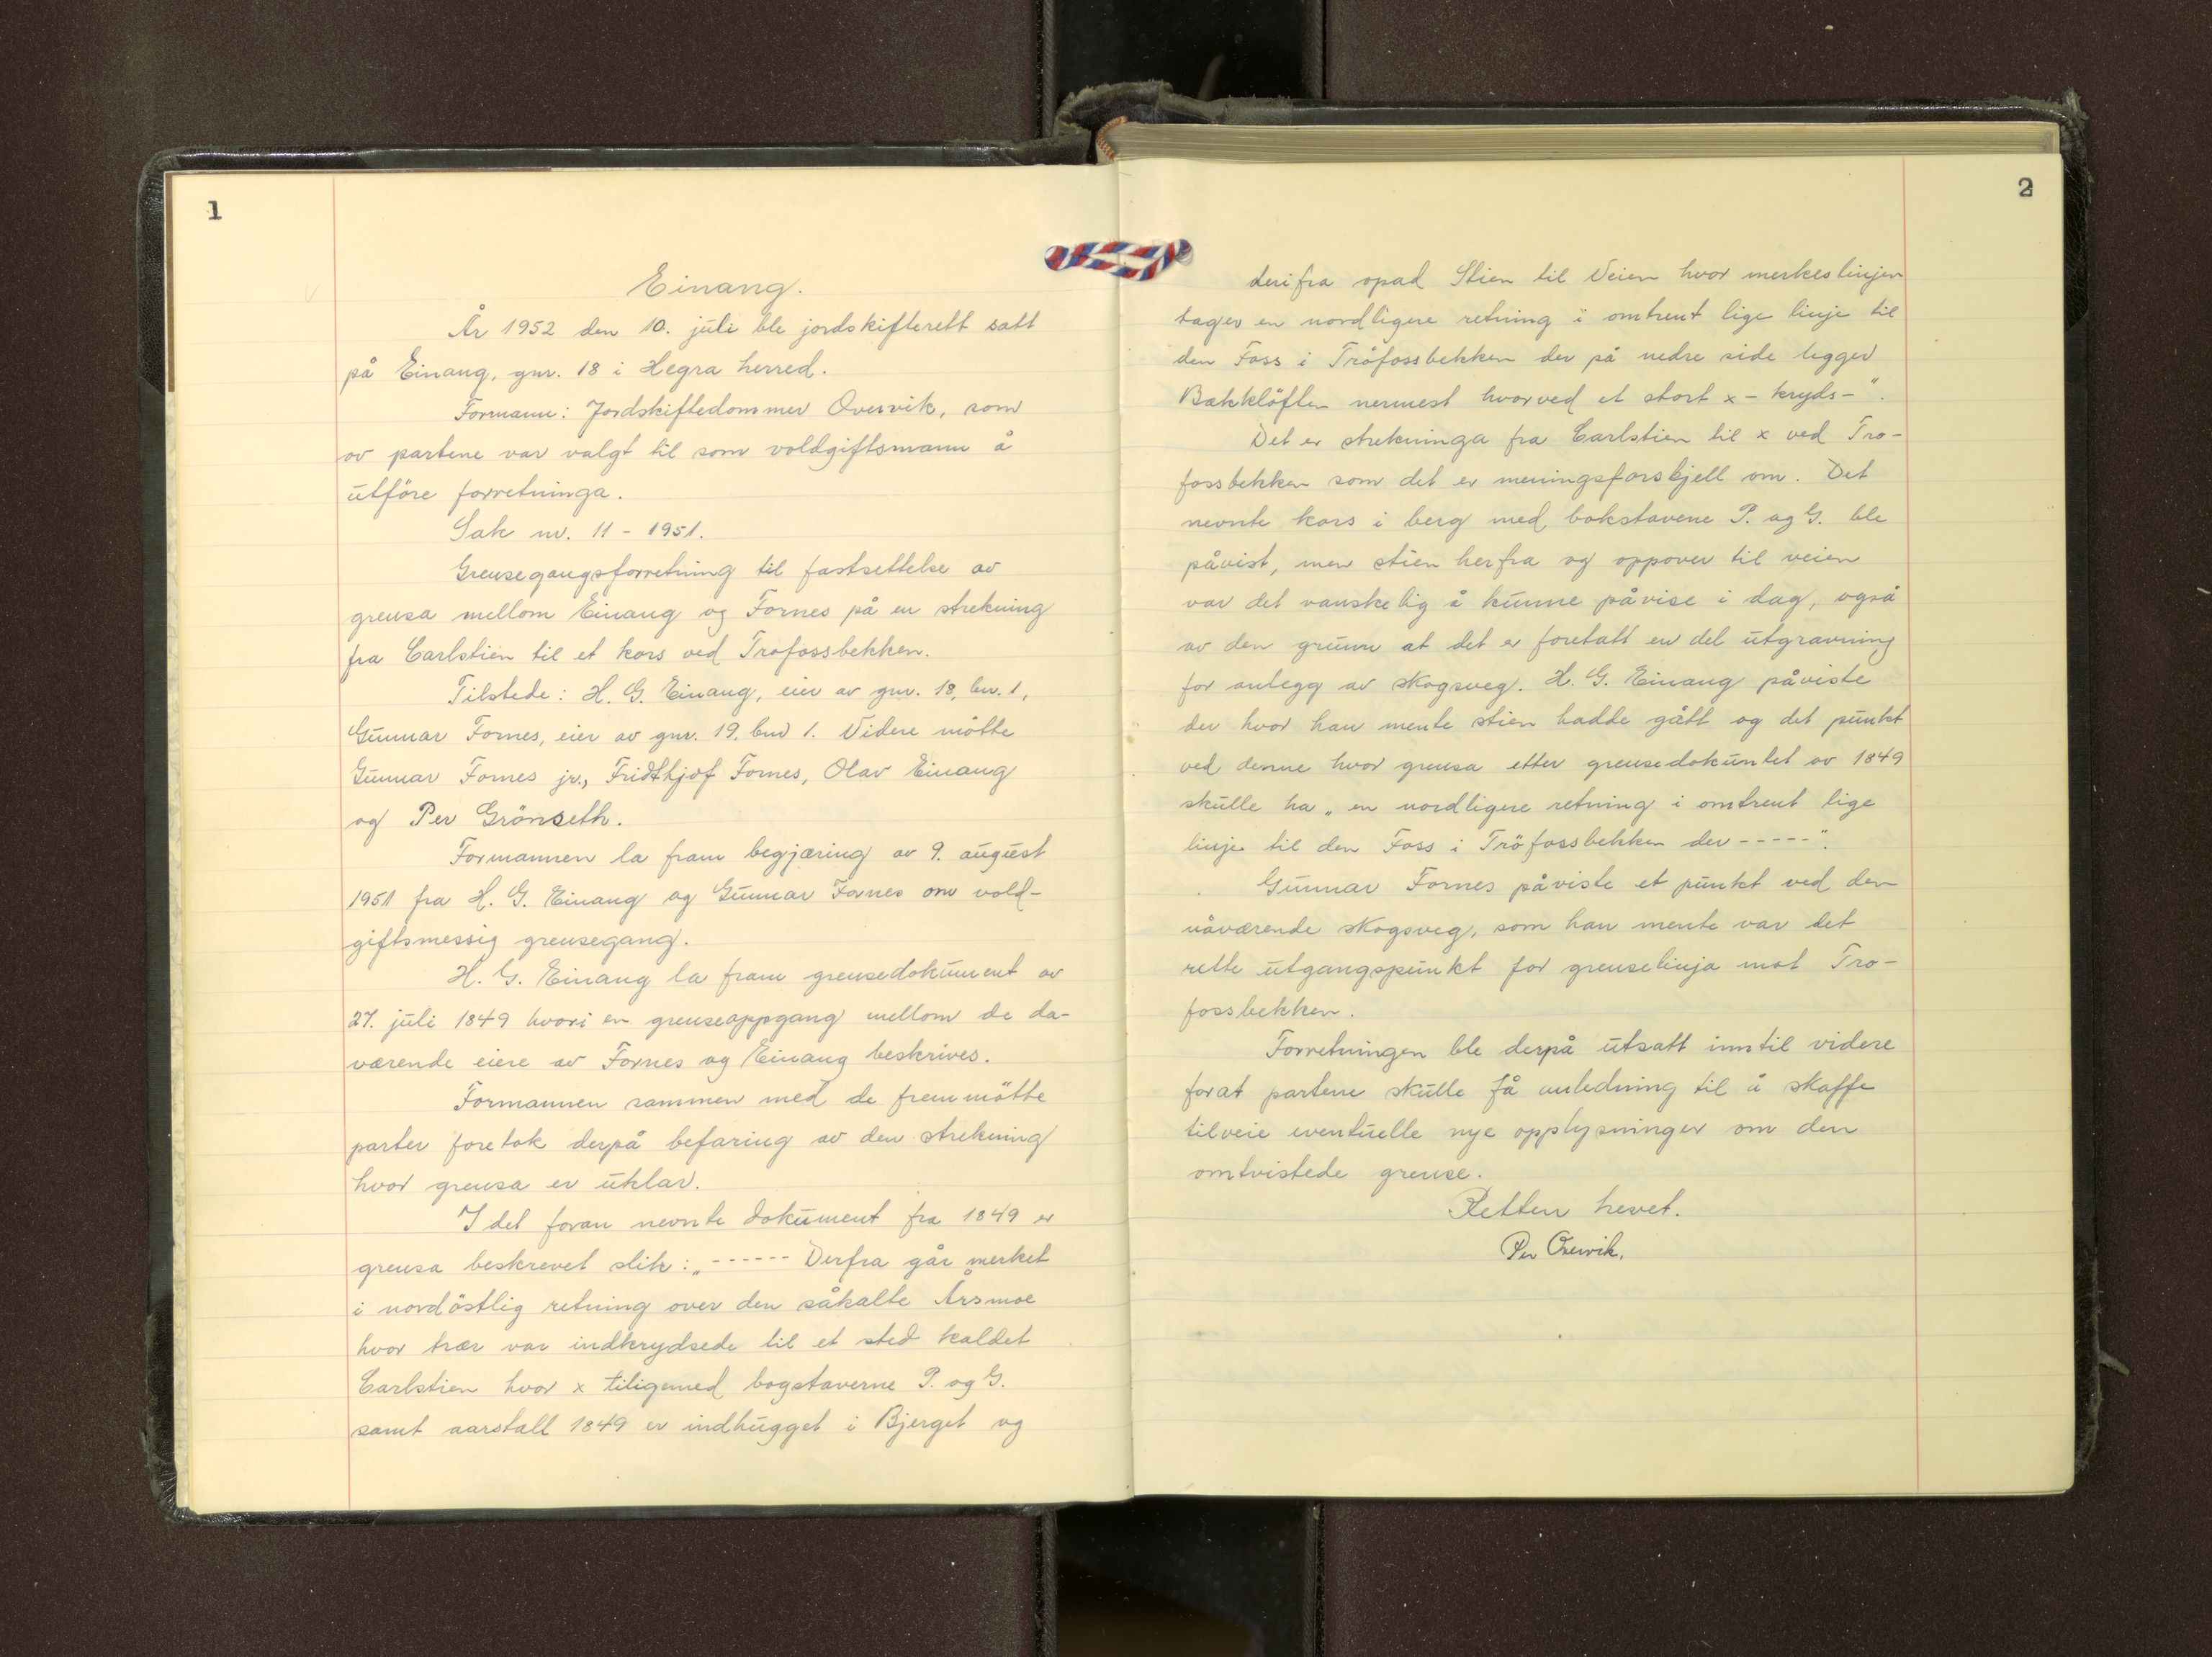 1
Einang.
År 1952 den 10. juli ble jordskifterett satt
på Einang, gnr. 18 i Hegra herred.
Formann: Jordskiftedommer Overvik, som
av partene var valgt til som voldgiftsmann å
utföre forretninga.
Sak nr. 11 - 1951.
Grensegangsforretning til fastsettelse av
grensa mellom Einang og Fornes på en strekning
fra Carlstien til et kors ved Trofossbekken.
Tilstede: H. G. Einang, eier av gnr. 18, bnr. 1,
Gunnar Fornes, eier av gnr. 19. bnr 1. Videre mötte
Gunnar Fornes jr., Fridthjof Fornes, Olav Einang
og Per Grönseth.
Formannen la fram begjæring av 9. august
1951 fra H. G. Einang og Gunnar Fornes om vold-
giftsmessig grensegang.
H. G. Einang la fram grensedokument av
27. juli 1849 hvori en grenseoppgang mellom de da-
værende eiere av Fornes og Einang beskrives.
Formannen sammen med de fremmötte
parter foretok derpå befaring av den strekning
hvor grensa er uklar.
I det foran nevnte dokument fra 1849 er
grensa beskrevet slik: „------ Derfra går merket
i nordöstlig retning over den såkalte Årsmoe
hvor trær var indkrydsede til et sted kaldet
Carlstien hvor x tiligemed bogstaverne P. og G.
samt aarstall 1849 er indhugget i Bjerget og
2
derifra opad Stien til Veien hvor merkeslinjen
tager en nordligere retning i omtrent lige linje til
den Foss i Tröfossbekken der på nedre side legger
Bakklöften nermest hvorved et stort x - kryds -".
Det er strekninga fra Carlstien til x ved Tro-
fossbekken som det er meningsforskjell om. Det
nevnte kors i berg med bokstavene P. og G. ble
påvist, men stien herfra og oppover til veien
var det vanskelig å kunne påvise i dag, også
av den grunn at det er foretatt en del utgravning
for anlegg av skogsveg. H. G. Einang påviste
der hvor han mente stien hadde gått og det punkt
ved denne hvor grensa etter grensedokuntet av 1849
skulle ha „en nordligere retning i omtrent lige
linje til den Foss i Tröfossbekken der -----".
Gunnar Fornes påviste et punkt ved den
nåværende skogsveg, som han mente var det
rette utgangspunkt for grenselinja mot Tro-
fossbekken.
Forretningen ble derpå utsatt inntil videre
forat partene skulle få anledning til å skaffe
tilveie eventuelle nye opplysninger om den
omtvistede grense.
Retten hevet.
Per Overvik.